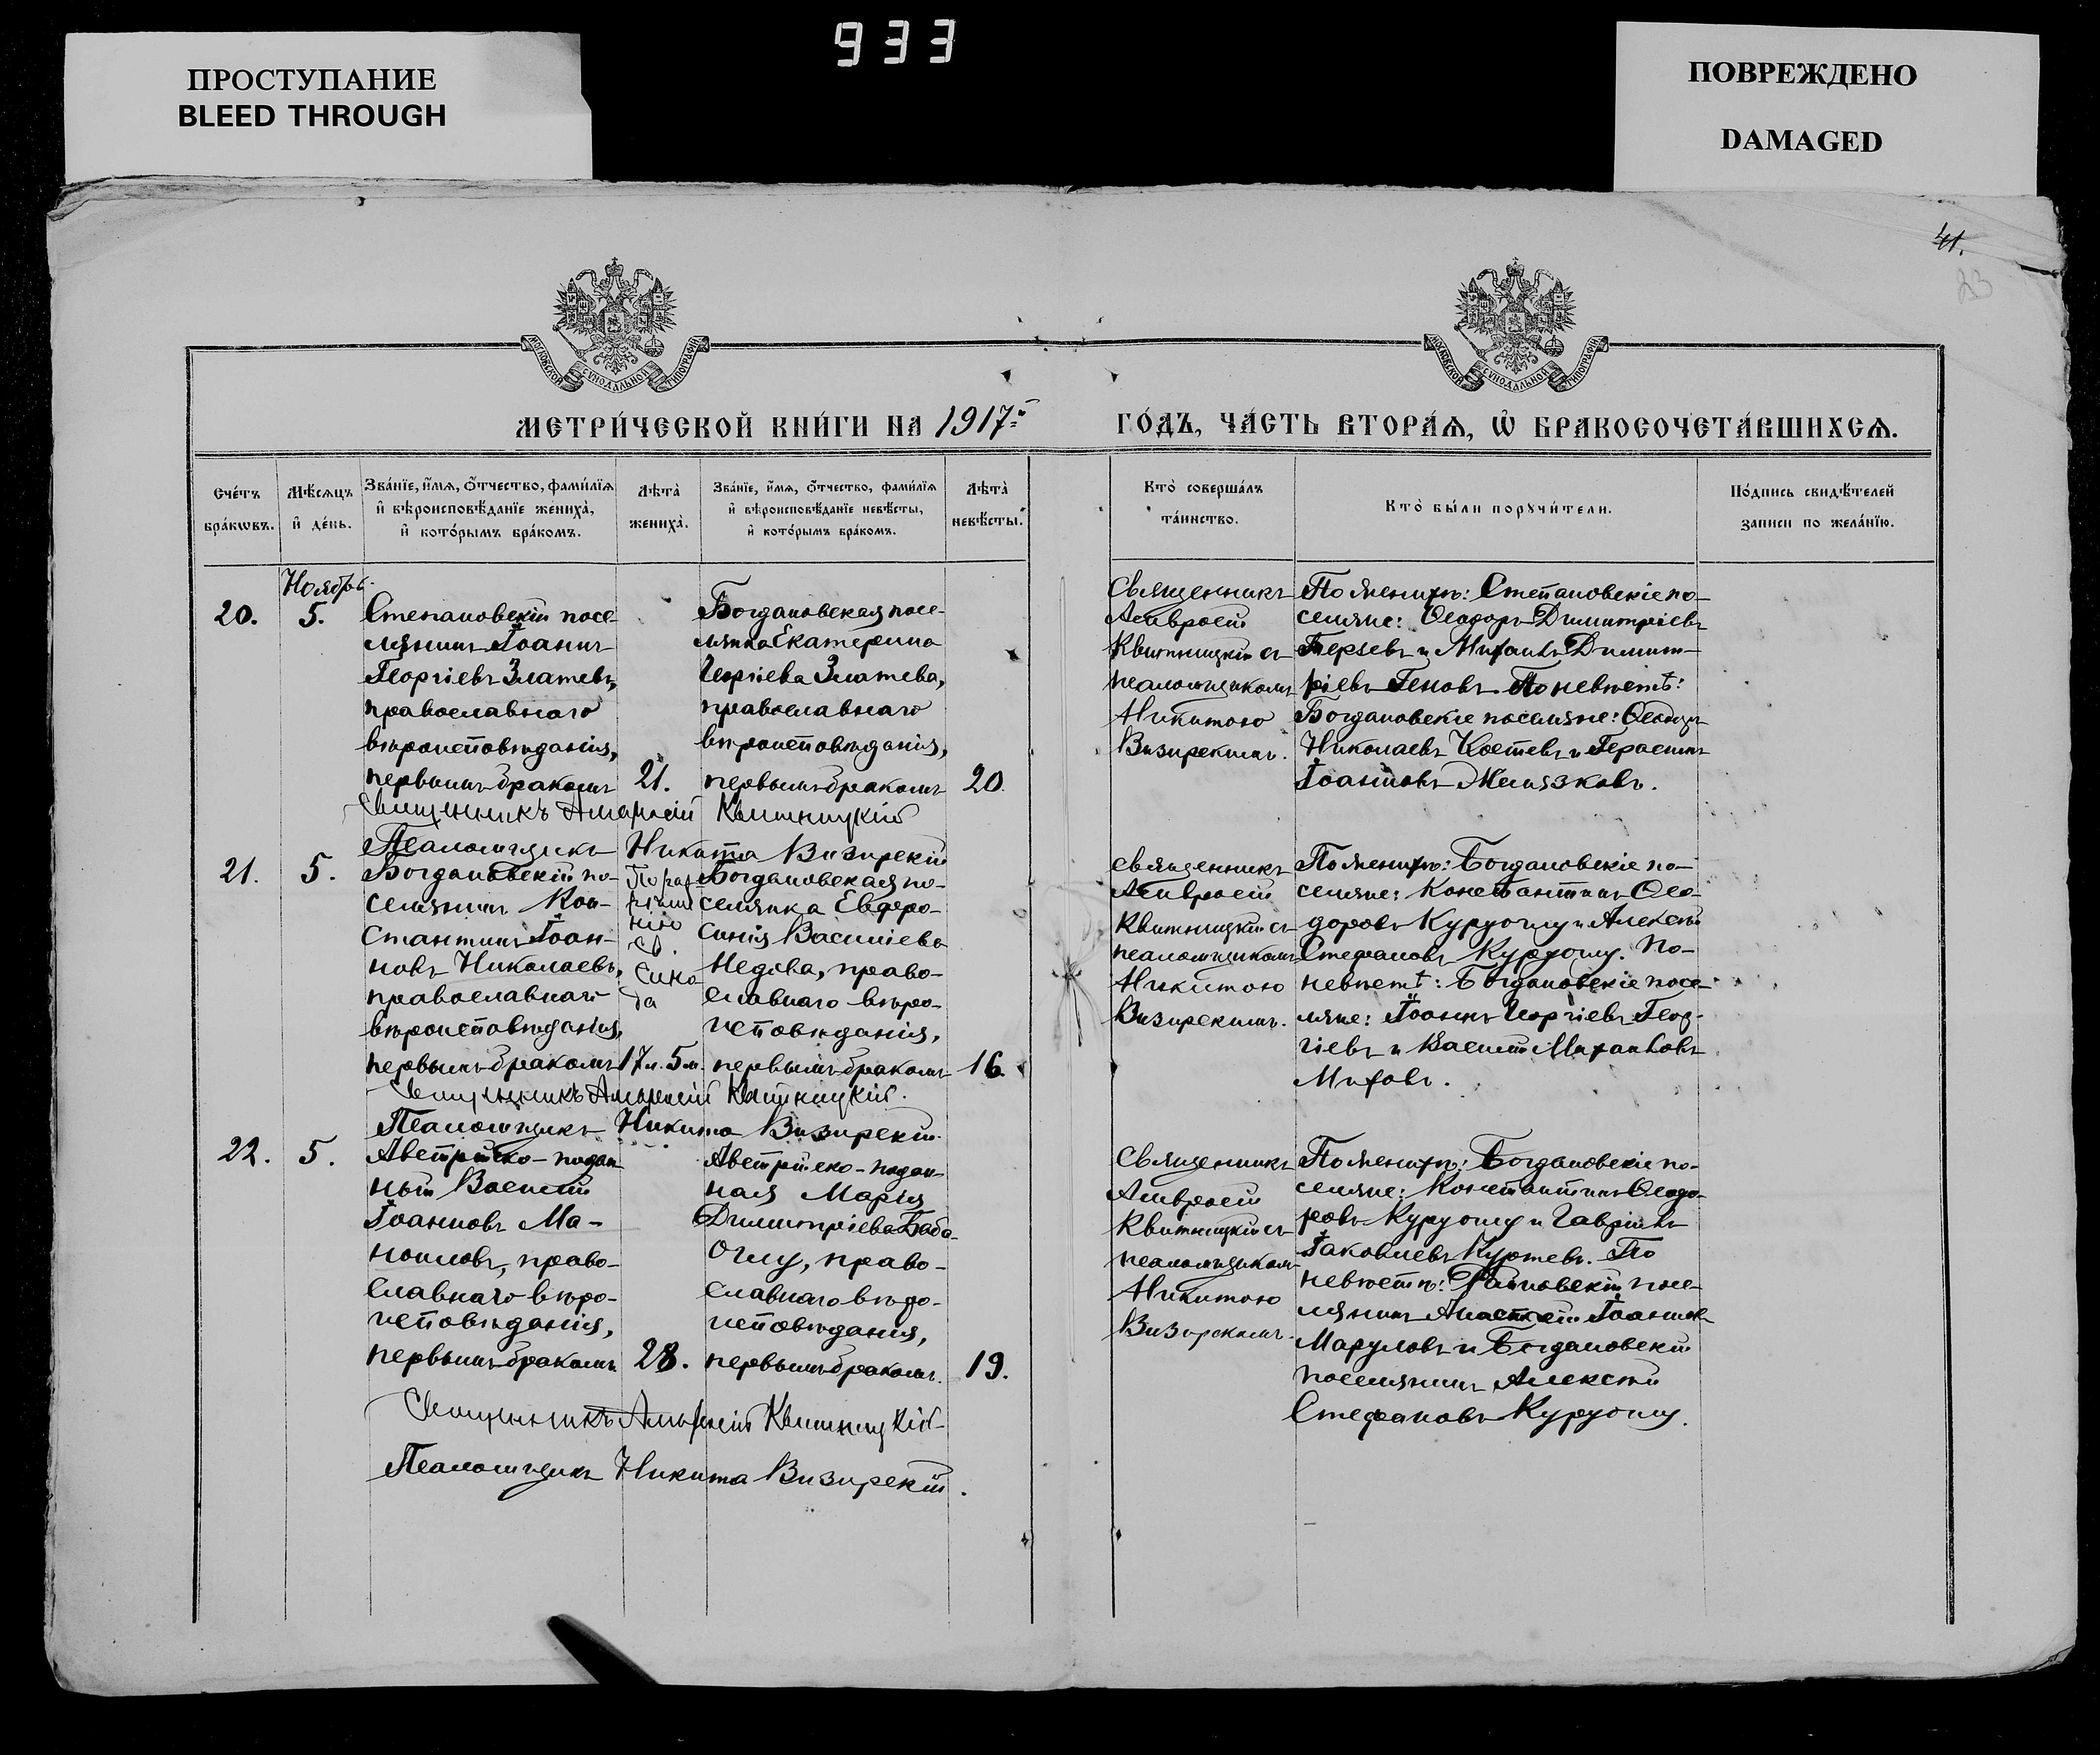 933
ПРОСТУПАНИЕ
BLEED THROUGH
ПОВРЕЖДЕНО
DAMAGED
41.
23
МОСКОВСКОЙ СѴНОДАЛЬНОЙ ТИПОГРАФІИ
МОСКОВСКОЙ СѴНОДАЛЬНОЙ ТИПОГРАФІИ
МЕТРИ́ЧЕСКОЙ КНИ́ГИ НА 1917й
ГО́ДЪ, ЧА́СТЬ ВТОРА́Ѧ, Ѡ҆ БРАКОСОЧЕТА́ВШИХСѦ.
Сче́тъ
бра́кѡвъ.
Мѣ́сѧцъ
и҆ де́нь.
Зва́нїе, и҆́мѧ, ѻ҆́тчество, фами́лїѧ
и҆ вѣроисповѣ́данїе жениха̀,
и҆ кото́рымъ бра́комъ.
Лѣта̀
жениха̀.
Зва́нїе, и҆́мѧ, ѻ҆́тчество, фами́лїѧ
и҆ вѣроисповѣ́данїе невѣ́сты,
и҆ кото́рымъ бра́комъ.
Лѣта̀
невѣ́сты.
Кто̀ соверша́лъ
та́инство.
Кто̀ бы́ли порꙋчи́тели.
По́дпись свидѣ́телей
записи по жела́нїю.
Ноябрь
20.
5.
Степановскій посе-
лянинъ Іоаннъ
Георгіевъ Златевъ,
православнаго
вѣроисповѣданія,
первымъ бракомъ
21.
Богдановская посе-
лянка Екатерина
Георгіева Златева,
православнаго
вѣроисповѣданія,
первымъ бракомъ
20.
Священникъ
Амвросій
Квитницкій съ
псаломщикомъ
Никитою
Визирскимъ.
По женихѣ: Степановскіе по-
селяне: Ѳеодоръ Димитріевъ
Терзевъ и Михаилъ Димит-
ріевъ Геновъ. По невѣстѣ:
Богдановскіе поселяне: Ѳеодоръ
Николаевъ Костевъ и Герасимъ
Іоанновъ Мелязковъ.
Священникъ Амвросій Квитницкій
Псаломщикъ Никита Визирскій
21.
5.
Богдановскій по-
селянинъ Кон-
стантинъ Іоан-
новъ Николаевъ,
православнаго
вѣроисповѣданія,
первымъ бракомъ
По раз-
рѣше
нію
Св.
Сино
да
17 л. 5 м.
Богдановская по-
селянка Евфро-
синія Василіева
Недева, право-
славнаго вѣро-
исповѣданія,
первымъ бракомъ
16.
Священникъ
Амвросій
Квитницкій съ
псаломщикомъ
Никитою
Визирскимъ.
По женихѣ: Богдановскіе по-
селяне: Константинъ Ѳео-
доровъ Куруоглу и Алексѣй
Стефановъ Куруоглу. По-
невѣстѣ: Богдановскіе посе-
ляне: Іоаннъ Георгіевъ Геор-
гіевъ и Василій Михаиловъ
Миховъ.
Священникъ Амвросій Квитницкій.
Псаломщикъ Никита Визирскій.
22.
5.
Австрійско-подан
ный Василій
Іоанновъ Ма-
ноиловъ, право-
славнаго вѣро-
исповѣданія,
первымъ бракомъ
28.
Австрійско-подан-
ная Марія
Димитріева Баба-
Оглу, право-
славнаго вѣро-
исповѣданія,
первымъ бракомъ.
19.
Священникъ
Амвросій
Квитницкій съ
псаломщикомъ
Никитою
Визирскимъ.
По женихѣ: Богдановскіе по-
селяне: Константинъ Ѳеодо-
ровъ Куруоглу и Гавріилъ
Іаковлевъ Куртевъ. По
невѣстѣ: посе-
лянинъ Анастасій Іоанновъ
Маруловъ и Богдановскій
поселянинъ Алексѣй
Стефановъ Куруоглу.
Священникъ Амвросій Квитницкій
Псаломщикъ Никита Визирскій.